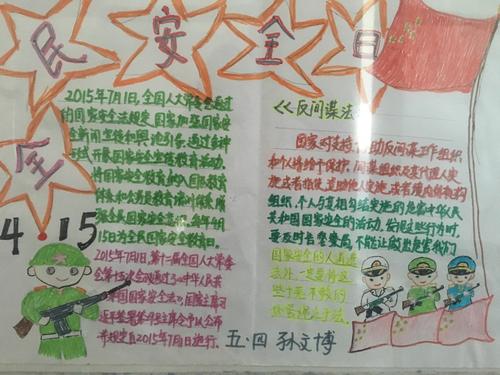 全
民
安
全
日
4.15
2015年7月1日,全国人大常委会通过
的国家安全法规定,国家加强国家安
全新闻宣传和舆论引导,通过多种
形式开展国家安全宣传教育活动,
将国家安全教育纳入国民教育
体系和公务员教育培训体系,增
强全民国家安全意识。每年4月
15日为全民国家安全教育日。
2015年7月1日,第十二届全国人大常委
会第十五次会议通过了《中华人民共
和国国家安全法》,国家主席习
近平签署第29号主席令予以公布
并规定自2015年7月1日施行.
<<反间谍法
国家对支持、协助反间谍工作组织
和个人将给个保护。间谍组织及其代理人实
施或者指使、资助他人实施,或者境内外机构
组织、个人与其相勾结实施的危害中华人民
共和国国家安全的活动。发现这些行为时,
要及时告警察局,不能让敌
五.四 孙文博